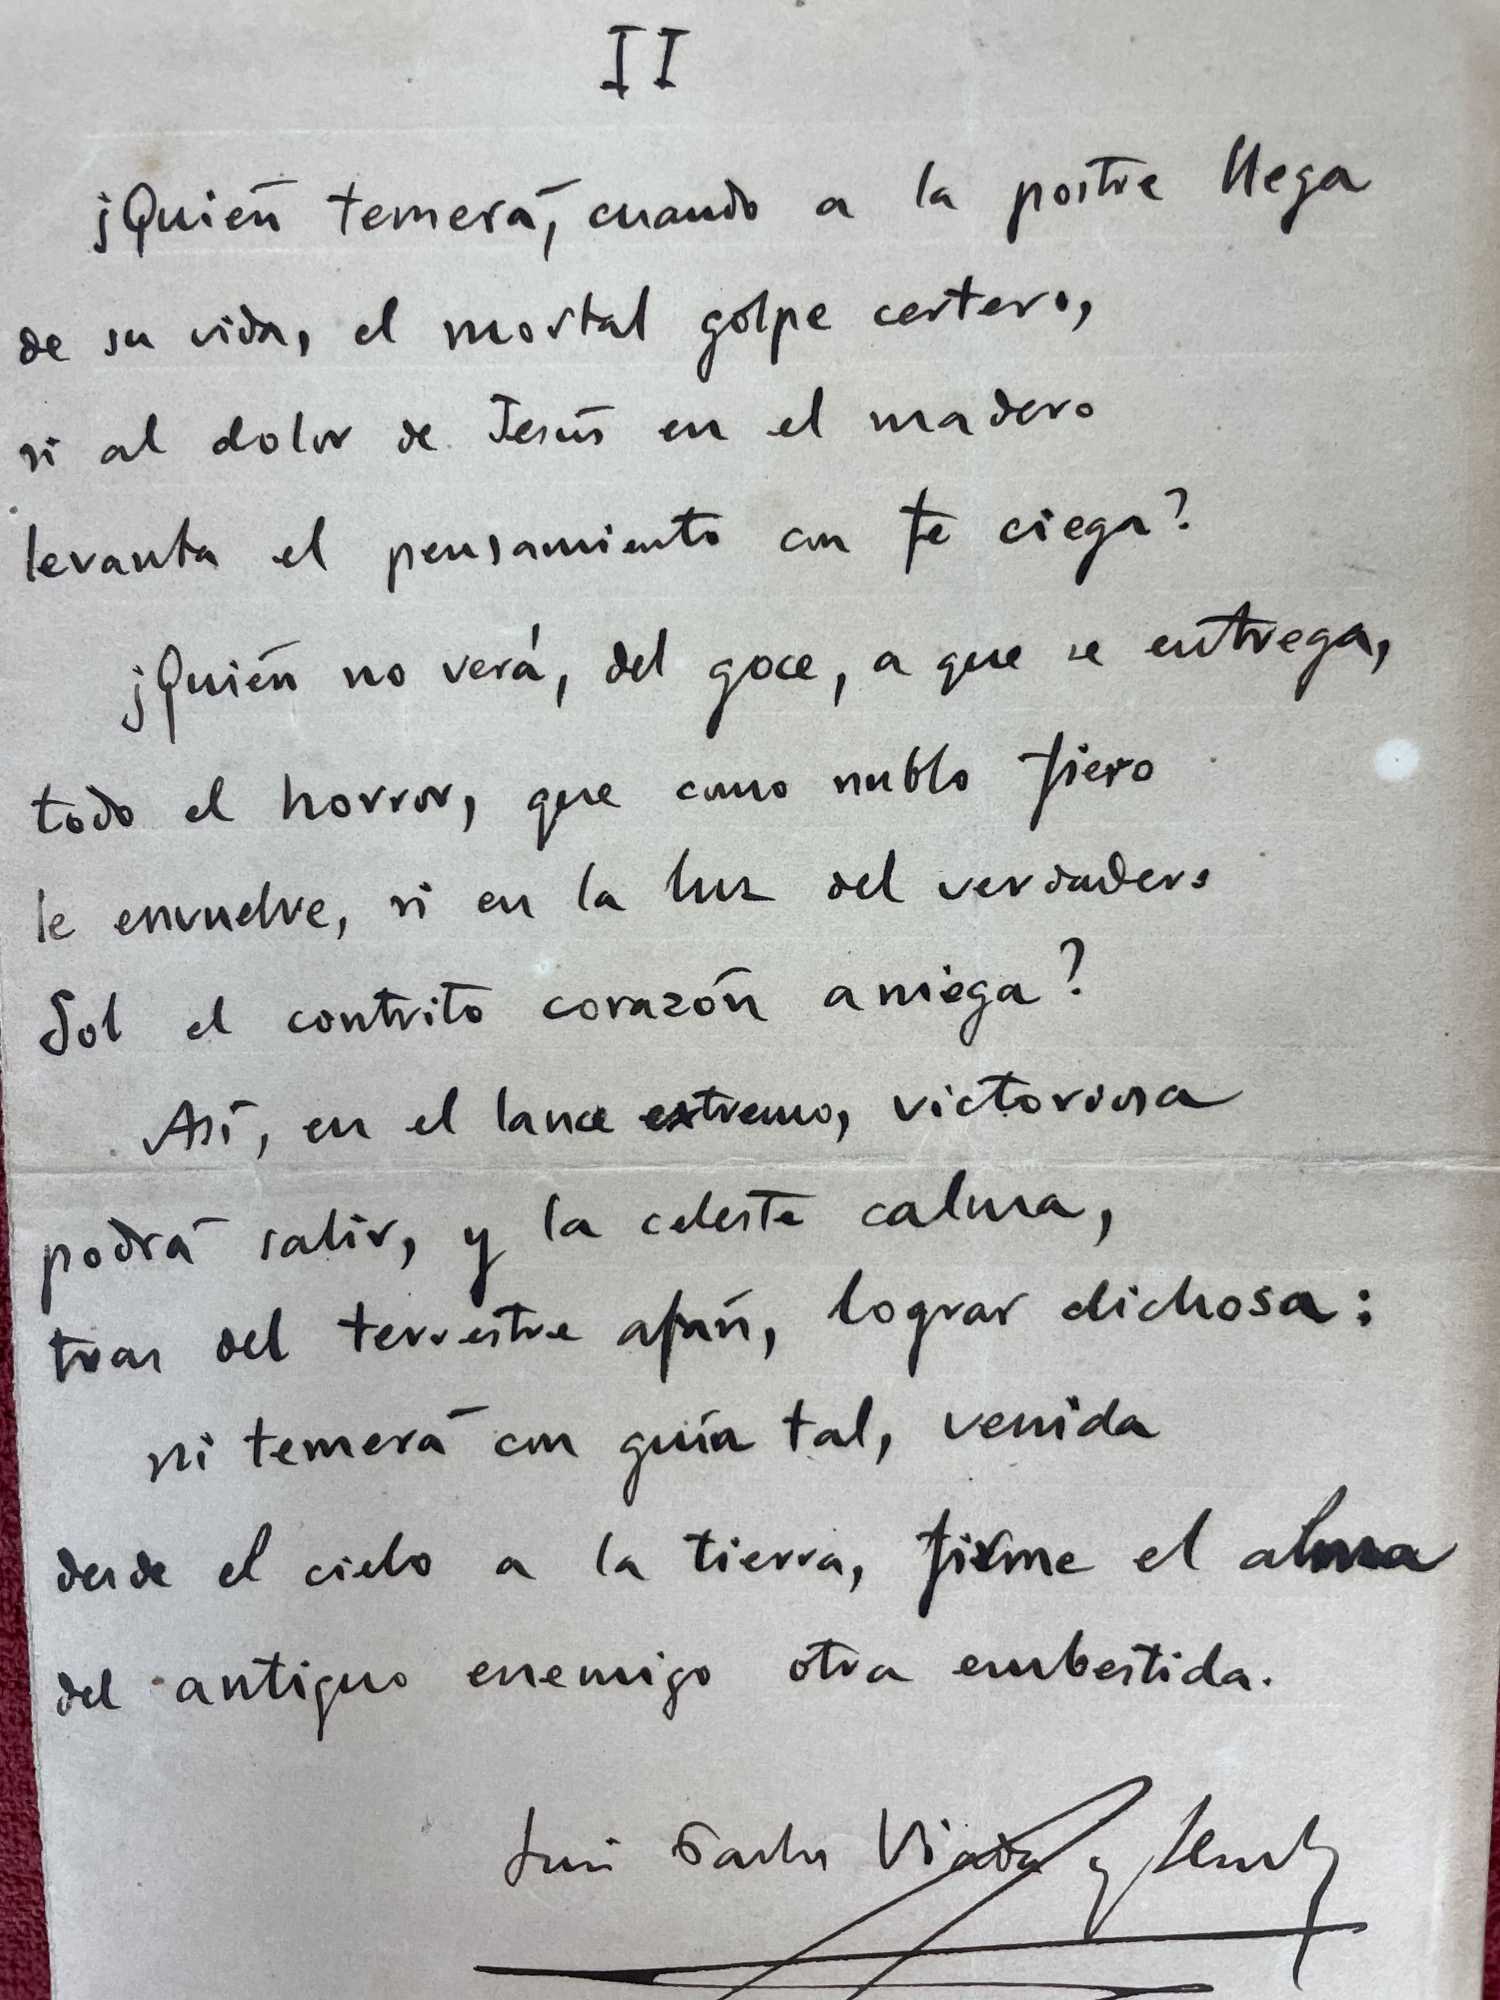 II
¡Quién temerá, cuando a la postre llega
de su vida, el mortal golpe certero,
si al dolor de Jesús en el madero
levanta el pensamiento con fe ciega?
¡Quién no verá, del goce, a que se entrega,
todo el horror, que como nublo fiero
le envuelve, si en la luz del verdadero
Sol el contrito corazón aniega?
Así, en el lance extremo, victoriosa
podrá salir, y la celeste calma,
tras del terrestre afán, lograr dichosa:
ni temerá con guía tal, venida
desde el cielo a la tierra, firme el alma
del antiguo enemigo otra embestida.
Luis Carlos Viada y Lluch